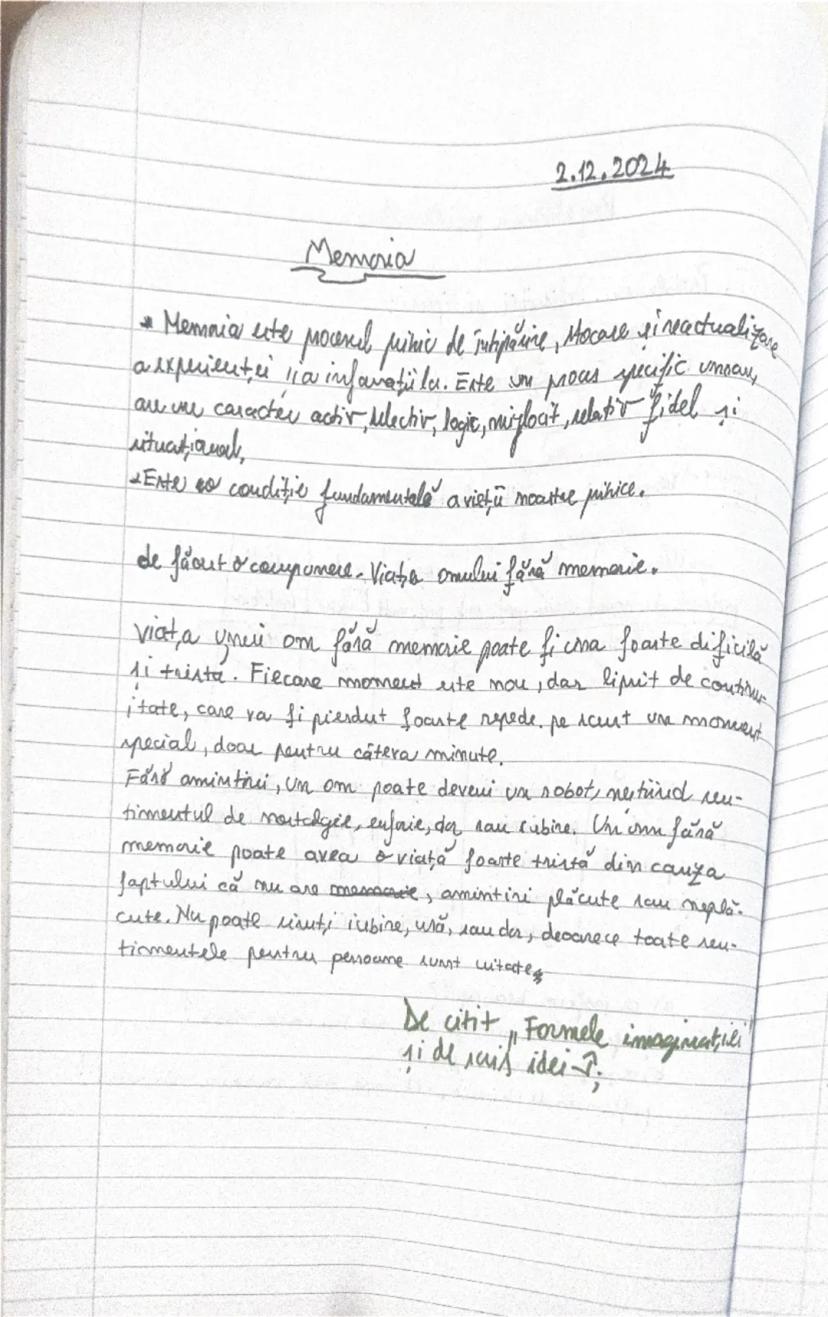 2.12.2024
Memoria
* Memoria este procesul psihic de întipărire, stocare și reactualizare
a experienței și a informațiilor. Este un proces specific uman,
are un caracter activ, selectiv, logic, mijlocit, relativ fidel și
situațional,
* Este o condiție fundamentală a vieții noastre psihice.
de făcut o compunere. Viața omului fără memorie.
Viața unui om fără memorie poate fi una foarte dificilă
și tristă. Fiecare moment este nou, dar lipsit de continu-
itate, care va fi pierdut foarte repede. pe scurt un moment
special, doar pentru câteva minute.
Fără amintiri, un om poate deveni un robot, neștiind sen-
timentul de nostalgie, euforie, dor sau iubire. Un om fără
memorie poate avea o viață foarte tristă din cauza
faptului că nu are memorie, amintiri plăcute sau neplă-
cute. Nu poate simți iubire, ură, sau dor, deoarece toate sen-
timentele pentru persoane sunt uitate
De citit „Formele imaginației
și de scris idei